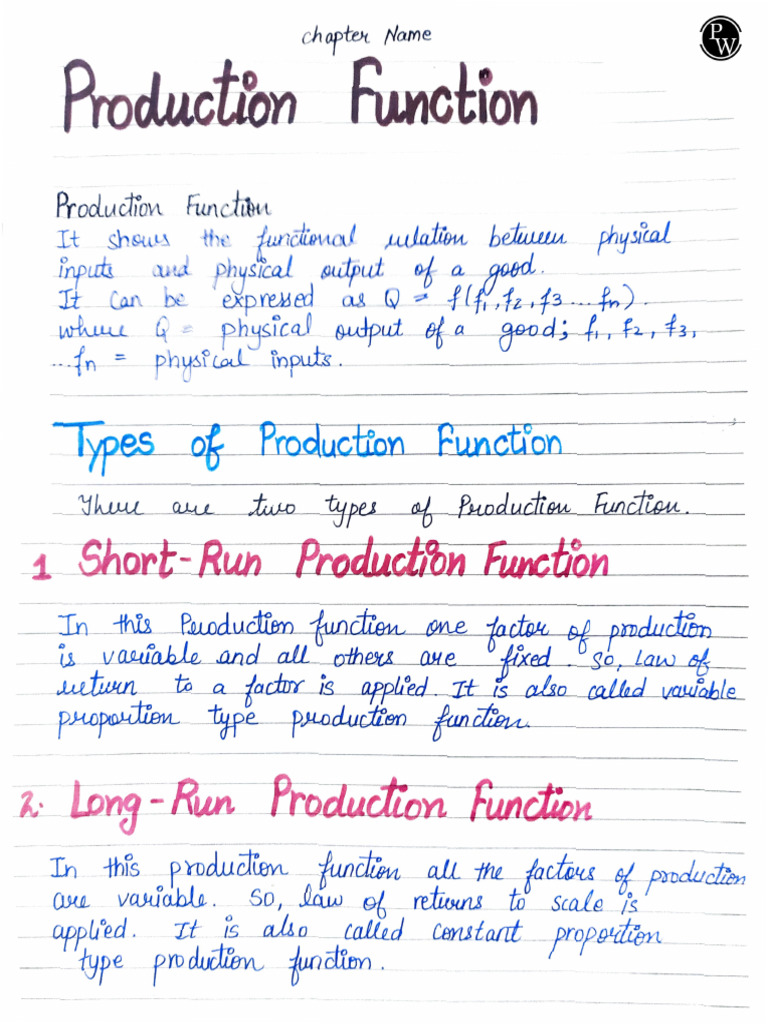 Chapter Name
PW
Production Function
Production Function
It shows the functional relation between physical
inputs and physical output of a good.
It can be expressed as Q = f(f₁, f₂, f3 ... fn).
where Q = physical output of a good; f₁, f₂, f₃,
...fn = physical inputs.
Types of Production Function
There are two types of Production Function.
1 Short-Run Production Function
In this Production function one factor of production
is variable and all others are fixed. So, Law of
return to a factor is applied. It is also called variable
proportion type production function.
2. Long-Run Production Function
In this production function all the factors of production
are variable. So, law of returns to scale is
applied. It is also called constant proportion
type production function.